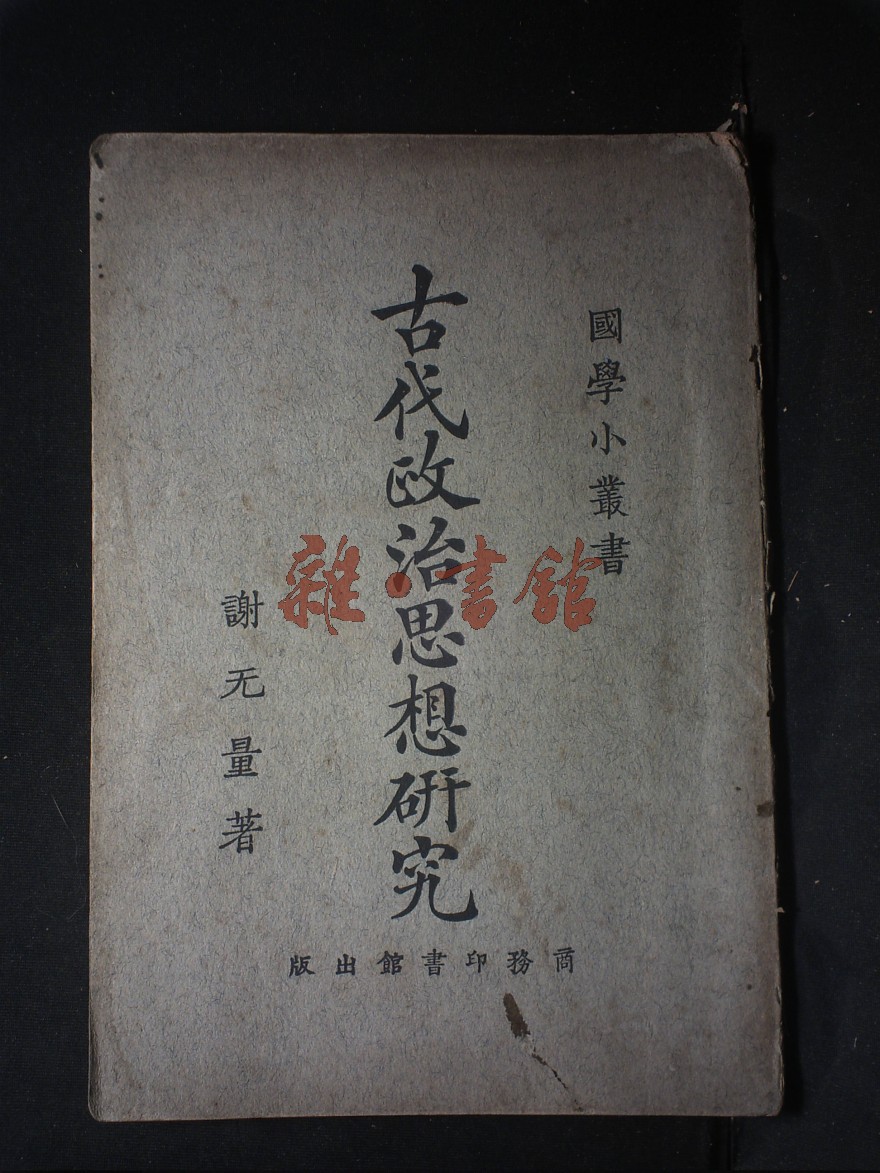 國學小叢書
古代政治思想研究
謝无量著
商務印書館出版
雜·書館